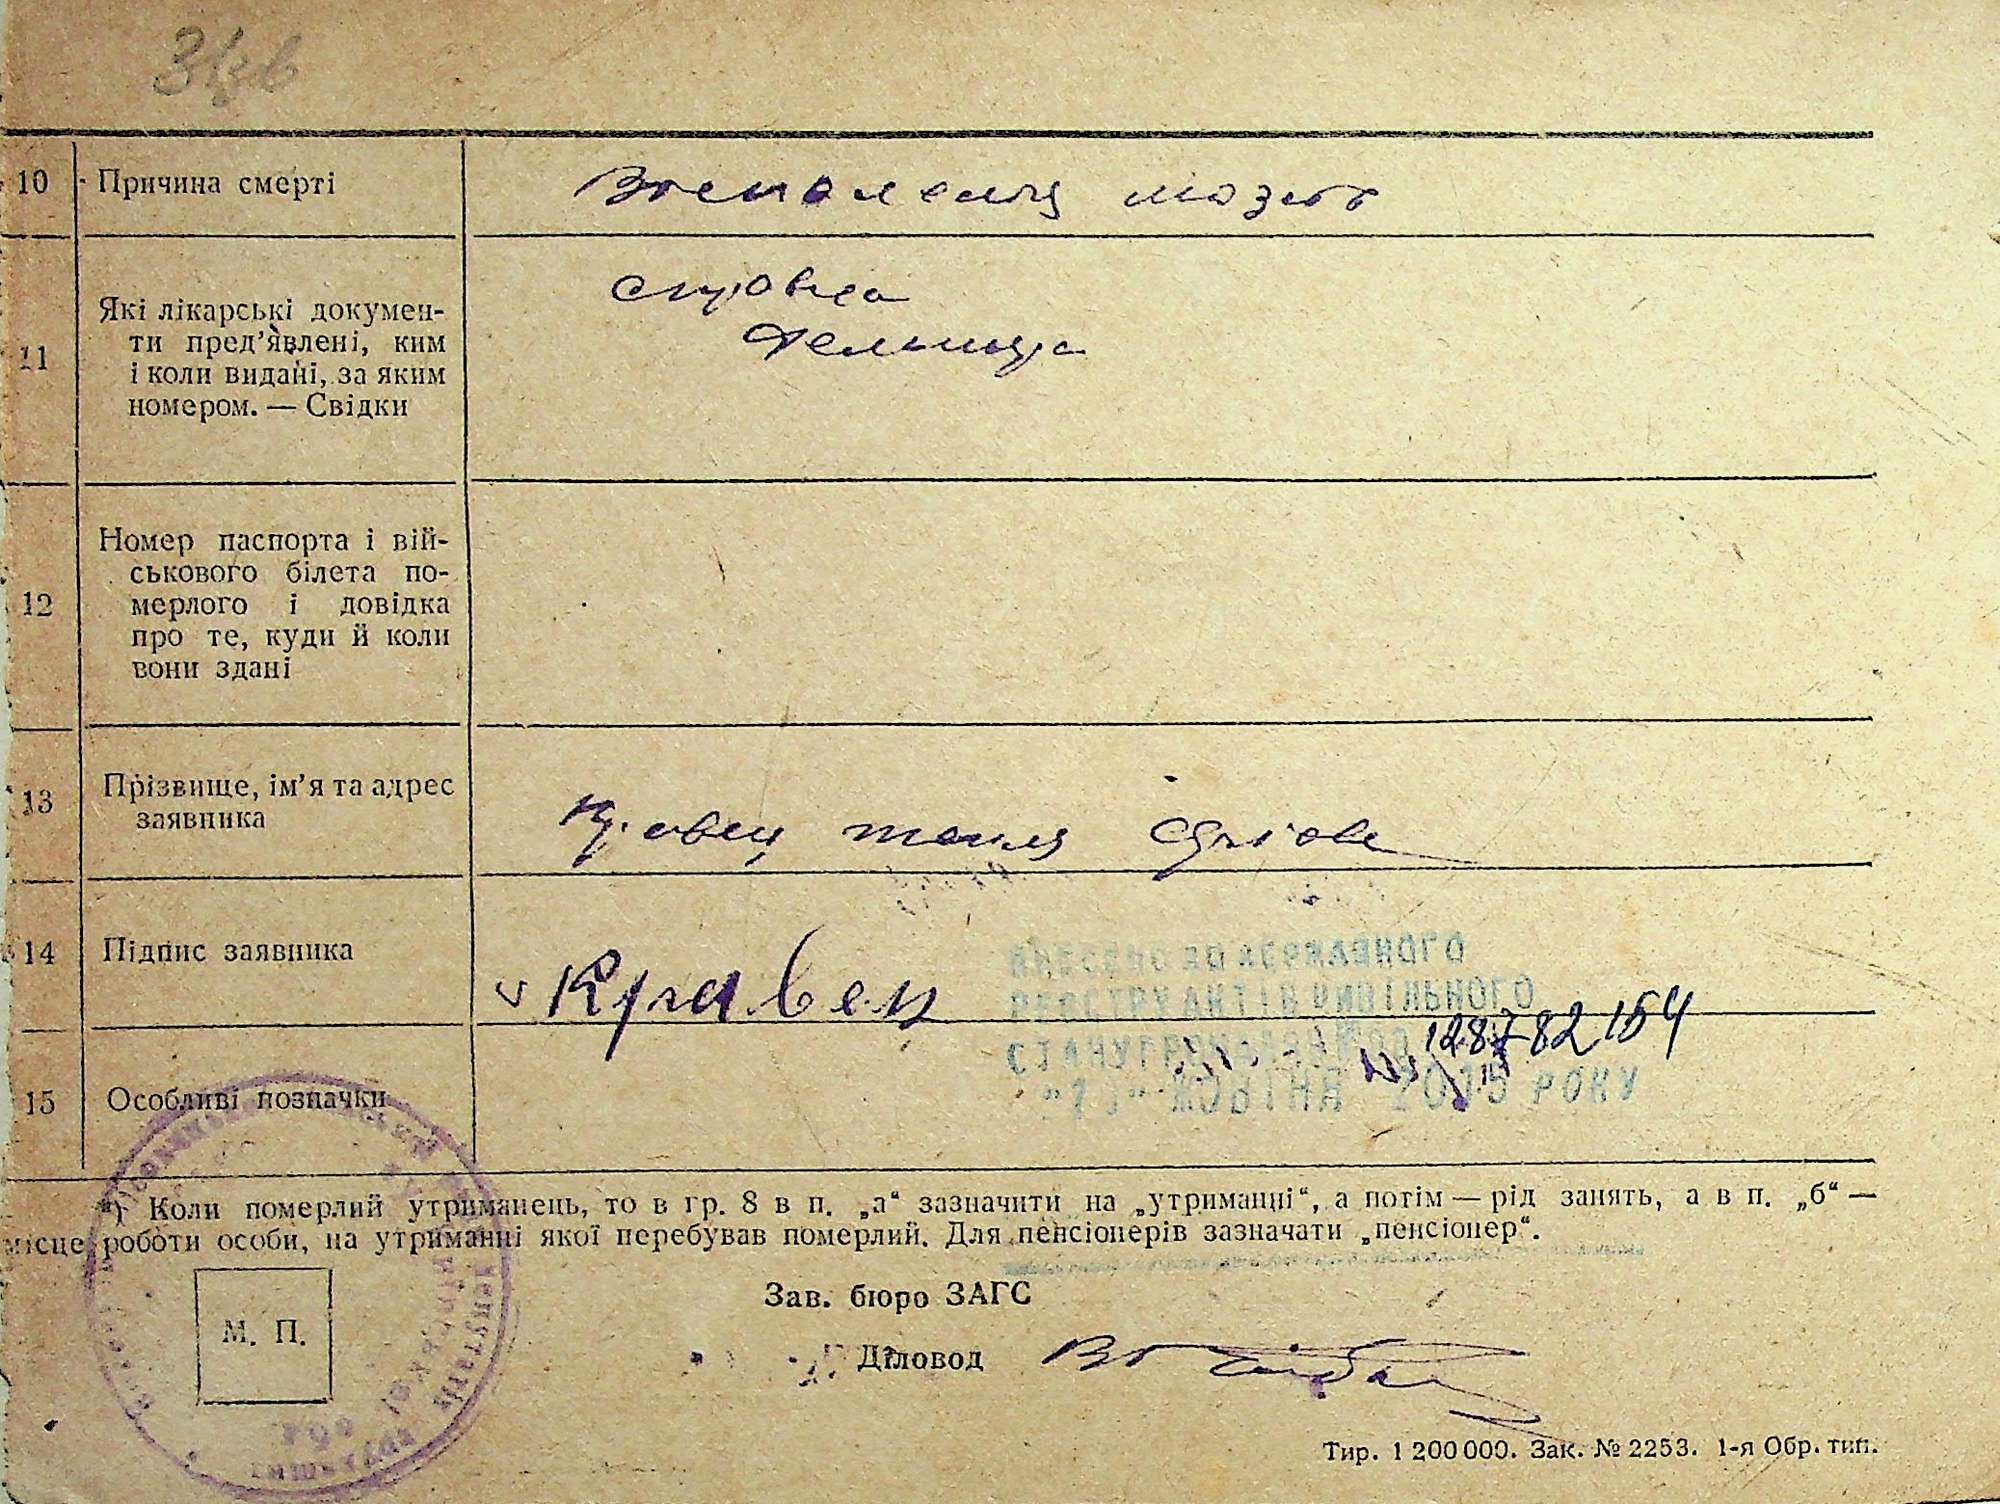 10 Причина смерті
Воспаления мозга
11 Які лікарські докумен-
ти пред’явлені, ким
і коли видані, за яким
номером. — Свідки
12 Номер паспорта і вій-
ськового білета по-
мерлого і довідка
про те, куди й коли
вони здані
13 Прізвище, ім’я та адрес
заявника
Кравец
14 Підпис заявника
Кравец
ВНЕСЕНО ДО ДЕРЖАВНОГО
РЕЄСТРУ АКТІВ ЦИВІЛЬНОГО
СТАНУ ГРОМАДЯН ЗА
128782154
ЖОВТНЯ 2015 РОКУ
15 Особливі позначки
*) Коли померлий утриманець, то в гр. 8 в п. „а“ зазначити на „утриманні“, а потім — рід занять, а в п. „б“ —
місце роботи особи, на утриманні якої перебував померлий. Для пенсіонерів зазначати „пенсіонер“.
Зав. бюро ЗАГС
М. П.
Діловод
Тир. 1 200 000. Зак. № 2253. 1-я Обр. тип.